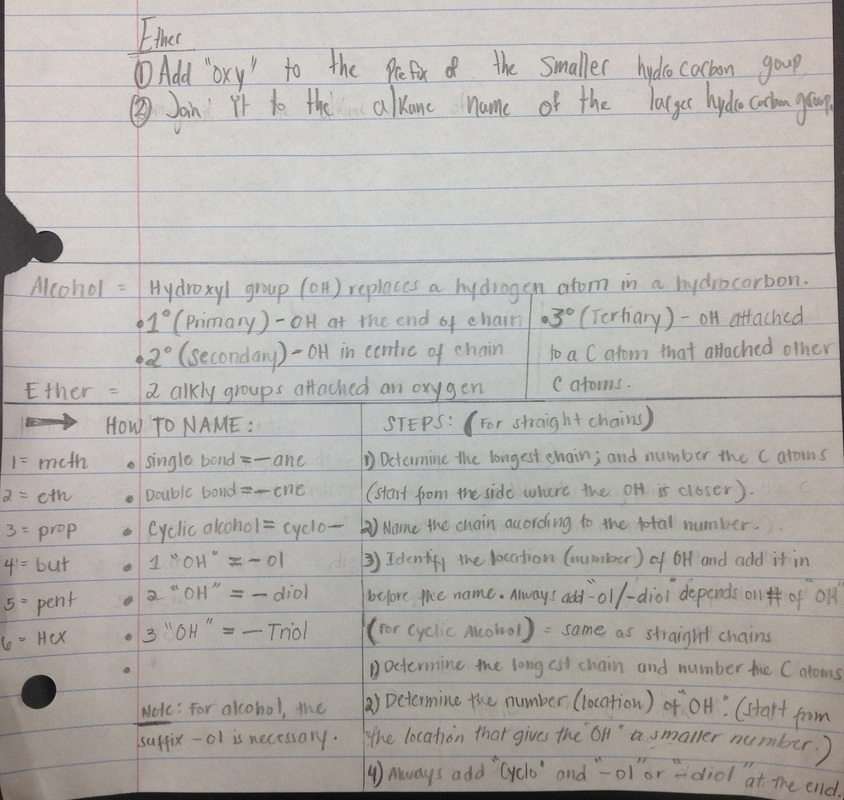 Ether
① Add "oxy" to the prefix of the smaller hydrocarbon goup
② Join it to the alkane name of the larger hydrocarbon group.
Alcohol = Hydroxyl group (OH) replaces a hydrogen atom in a hydrocarbon.
•1° (Primary) - OH at the end of chain
•2° (Secondary) - OH in centre of chain
•3° (Tertiary) - OH attached
to a C atom that attached other
C atoms.
Ether = 2 alkly groups attached an oxygen
→ HOW TO NAME:
1 = meth
2 = eth
3 = prop
4 = but
5 = pent
6 = Hex
• single bond = -ane
• Double bond = -ene
• Cyclic alcohol = cyclo-
• 1 "OH" = -ol
• 2 "OH" = -diol
• 3 "OH" = -Triol
•
Note: For alcohol, the
suffix -ol is necessary.
STEPS: (For straight chains)
1) Determine the longest chain; and number the C atoms
(start from the side where the OH is closer).
2) Name the chain according to the total number.
3) Identify the location (number) of OH and add it in
before the name. Always add "-ol/-diol" depends on # of "OH"
(For Cyclic Alcohol) = same as straight chains
1) Determine the longest chain and number the C atoms
2) Determine the number (location) of "OH". (start from
the location that gives the "OH" a smaller number.)
4) Always add "Cyclo" and "-ol" or "-diol" at the end.